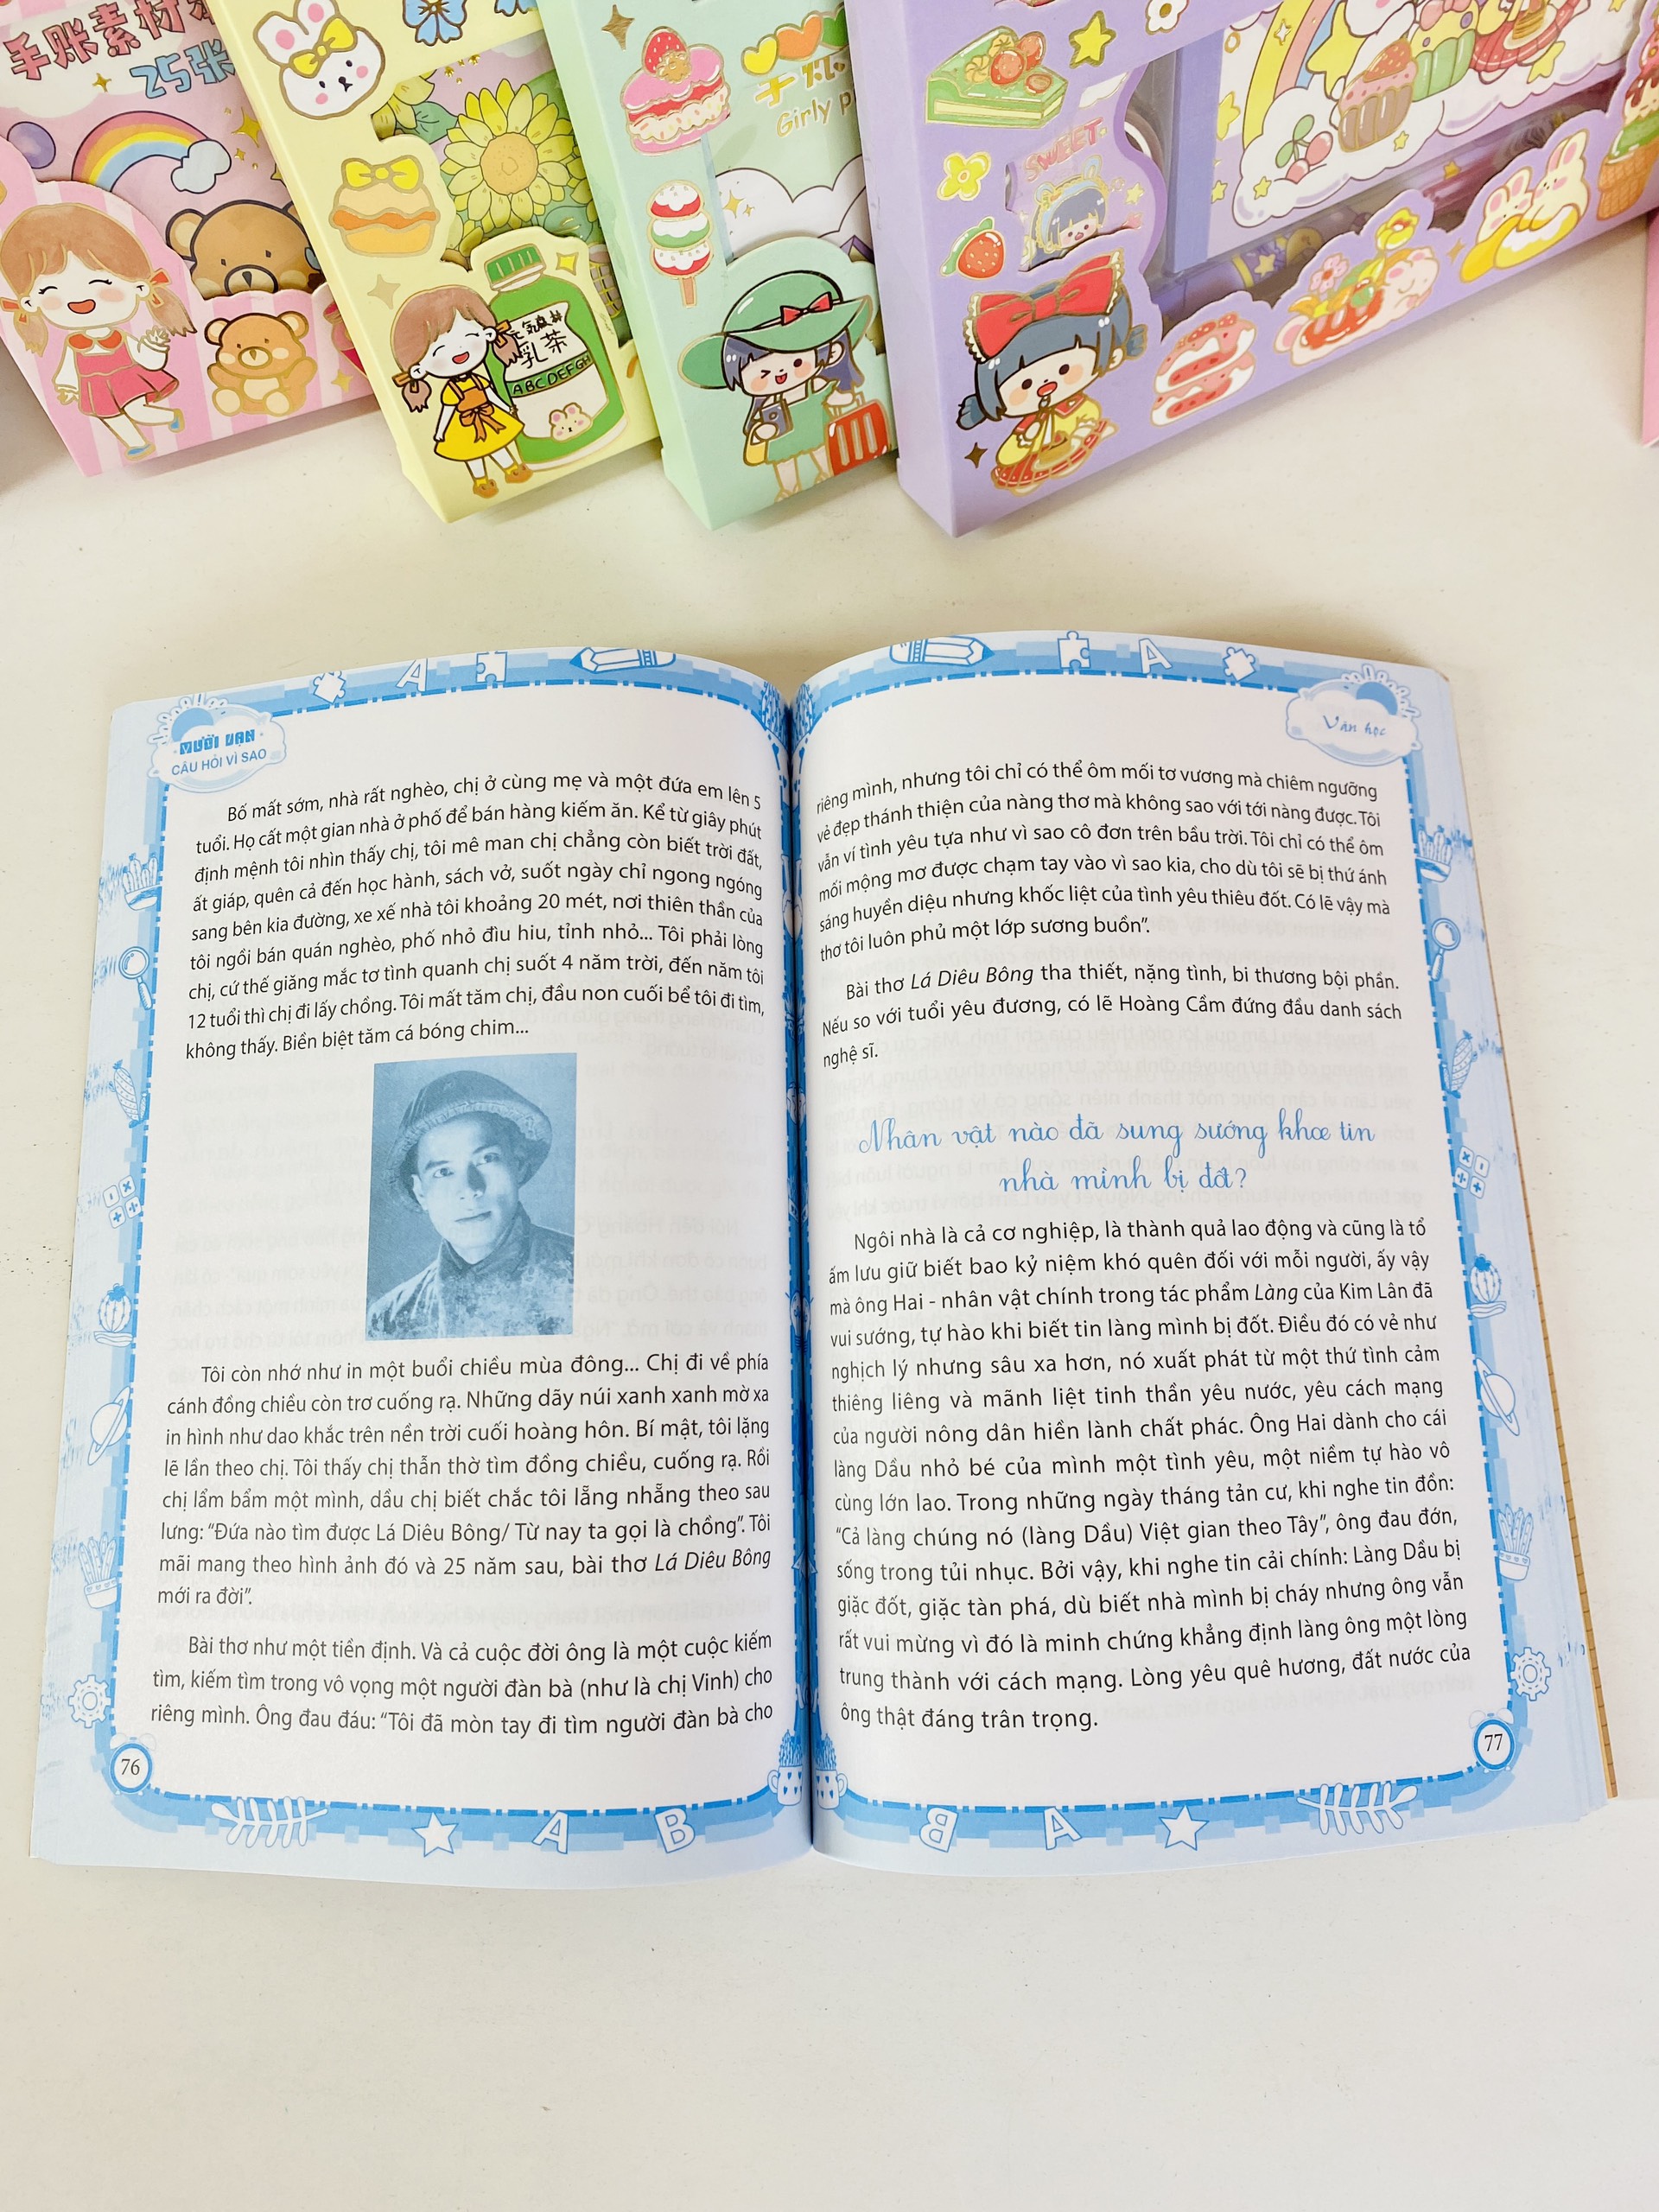 手账素材
25张
Girly
SWEET
元気森林
乳茶
ABCDEFGH
MƯỜI VẠN
CÂU HỎI VÌ SAO
Bố mất sớm, nhà rất nghèo, chị ở cùng mẹ và một đứa em lên 5
tuổi. Họ cất một gian nhà ở phố để bán hàng kiếm ăn. Kể từ giây phút
định mệnh tôi nhìn thấy chị, tôi mê man chị chẳng còn biết trời đất,
ất giáp, quên cả đến học hành, sách vở, suốt ngày chỉ ngong ngóng
sang bên kia đường, xe xế nhà tôi khoảng 20 mét, nơi thiên thần của
tôi ngồi bán quán nghèo, phố nhỏ đìu hiu, tỉnh nhỏ... Tôi phải lòng
chị, cứ thế giăng mắc tơ tình quanh chị suốt 4 năm trời, đến năm tôi
12 tuổi thì chị đi lấy chồng. Tôi mất tăm chị, đầu non cuối bể tôi đi tìm,
không thấy. Biền biệt tăm cá bóng chim...
Tôi còn nhớ như in một buổi chiều mùa đông... Chị đi về phía
cánh đồng chiều còn trơ cuống rạ. Những dãy núi xanh xanh mờ xa
in hình như dao khắc trên nền trời cuối hoàng hôn. Bí mật, tôi lặng
lẽ lần theo chị. Tôi thấy chị thẫn thờ tìm đồng chiều, cuống rạ. Rồi
chị lẩm bẩm một mình, dầu chị biết chắc tôi lẵng nhẵng theo sau
lưng: “Đứa nào tìm được Lá Diêu Bông/ Từ nay ta gọi là chồng”. Tôi
mãi mang theo hình ảnh đó và 25 năm sau, bài thơ Lá Diêu Bông
mới ra đời”.
Bài thơ như một tiền định. Và cả cuộc đời ông là một cuộc kiếm
tìm, kiếm tìm trong vô vọng một người đàn bà (như là chị Vinh) cho
riêng mình. Ông đau đáu: “Tôi đã mòn tay đi tìm người đàn bà cho
76
Văn học
riêng mình, nhưng tôi chỉ có thể ôm mối tơ vương mà chiêm ngưỡng
vẻ đẹp thánh thiện của nàng thơ mà không sao với tới nàng được. Tôi
vẫn ví tình yêu tựa như vì sao cô đơn trên bầu trời. Tôi chỉ có thể ôm
mối mộng mơ được chạm tay vào vì sao kia, cho dù tôi sẽ bị thứ ánh
sáng huyền diệu nhưng khốc liệt của tình yêu thiêu đốt. Có lẽ vậy mà
thơ tôi luôn phủ một lớp sương buồn”.
Bài thơ Lá Diêu Bông tha thiết, nặng tình, bi thương bội phần.
Nếu so với tuổi yêu đương, có lẽ Hoàng Cầm đứng đầu danh sách
nghệ sĩ.
Nhân vật nào đã sung sướng khoe tin
nhà mình bị đốt?
Ngôi nhà là cả cơ nghiệp, là thành quả lao động và cũng là tổ
ấm lưu giữ biết bao kỷ niệm khó quên đối với mỗi người, ấy vậy
mà ông Hai - nhân vật chính trong tác phẩm Làng của Kim Lân đã
vui sướng, tự hào khi biết tin làng mình bị đốt. Điều đó có vẻ như
nghịch lý nhưng sâu xa hơn, nó xuất phát từ một thứ tình cảm
thiêng liêng và mãnh liệt tinh thần yêu nước, yêu cách mạng
của người nông dân hiền lành chất phác. Ông Hai dành cho cái
làng Dầu nhỏ bé của mình một tình yêu, một niềm tự hào vô
cùng lớn lao. Trong những ngày tháng tản cư, khi nghe tin đồn:
“Cả làng chúng nó (làng Dầu) Việt gian theo Tây”, ông đau đớn,
sống trong tủi nhục. Bởi vậy, khi nghe tin cải chính: Làng Dầu bị
giặc đốt, giặc tàn phá, dù biết nhà mình bị cháy nhưng ông vẫn
rất vui mừng vì đó là minh chứng khẳng định làng ông một lòng
trung thành với cách mạng. Lòng yêu quê hương, đất nước của
ông thật đáng trân trọng.
77